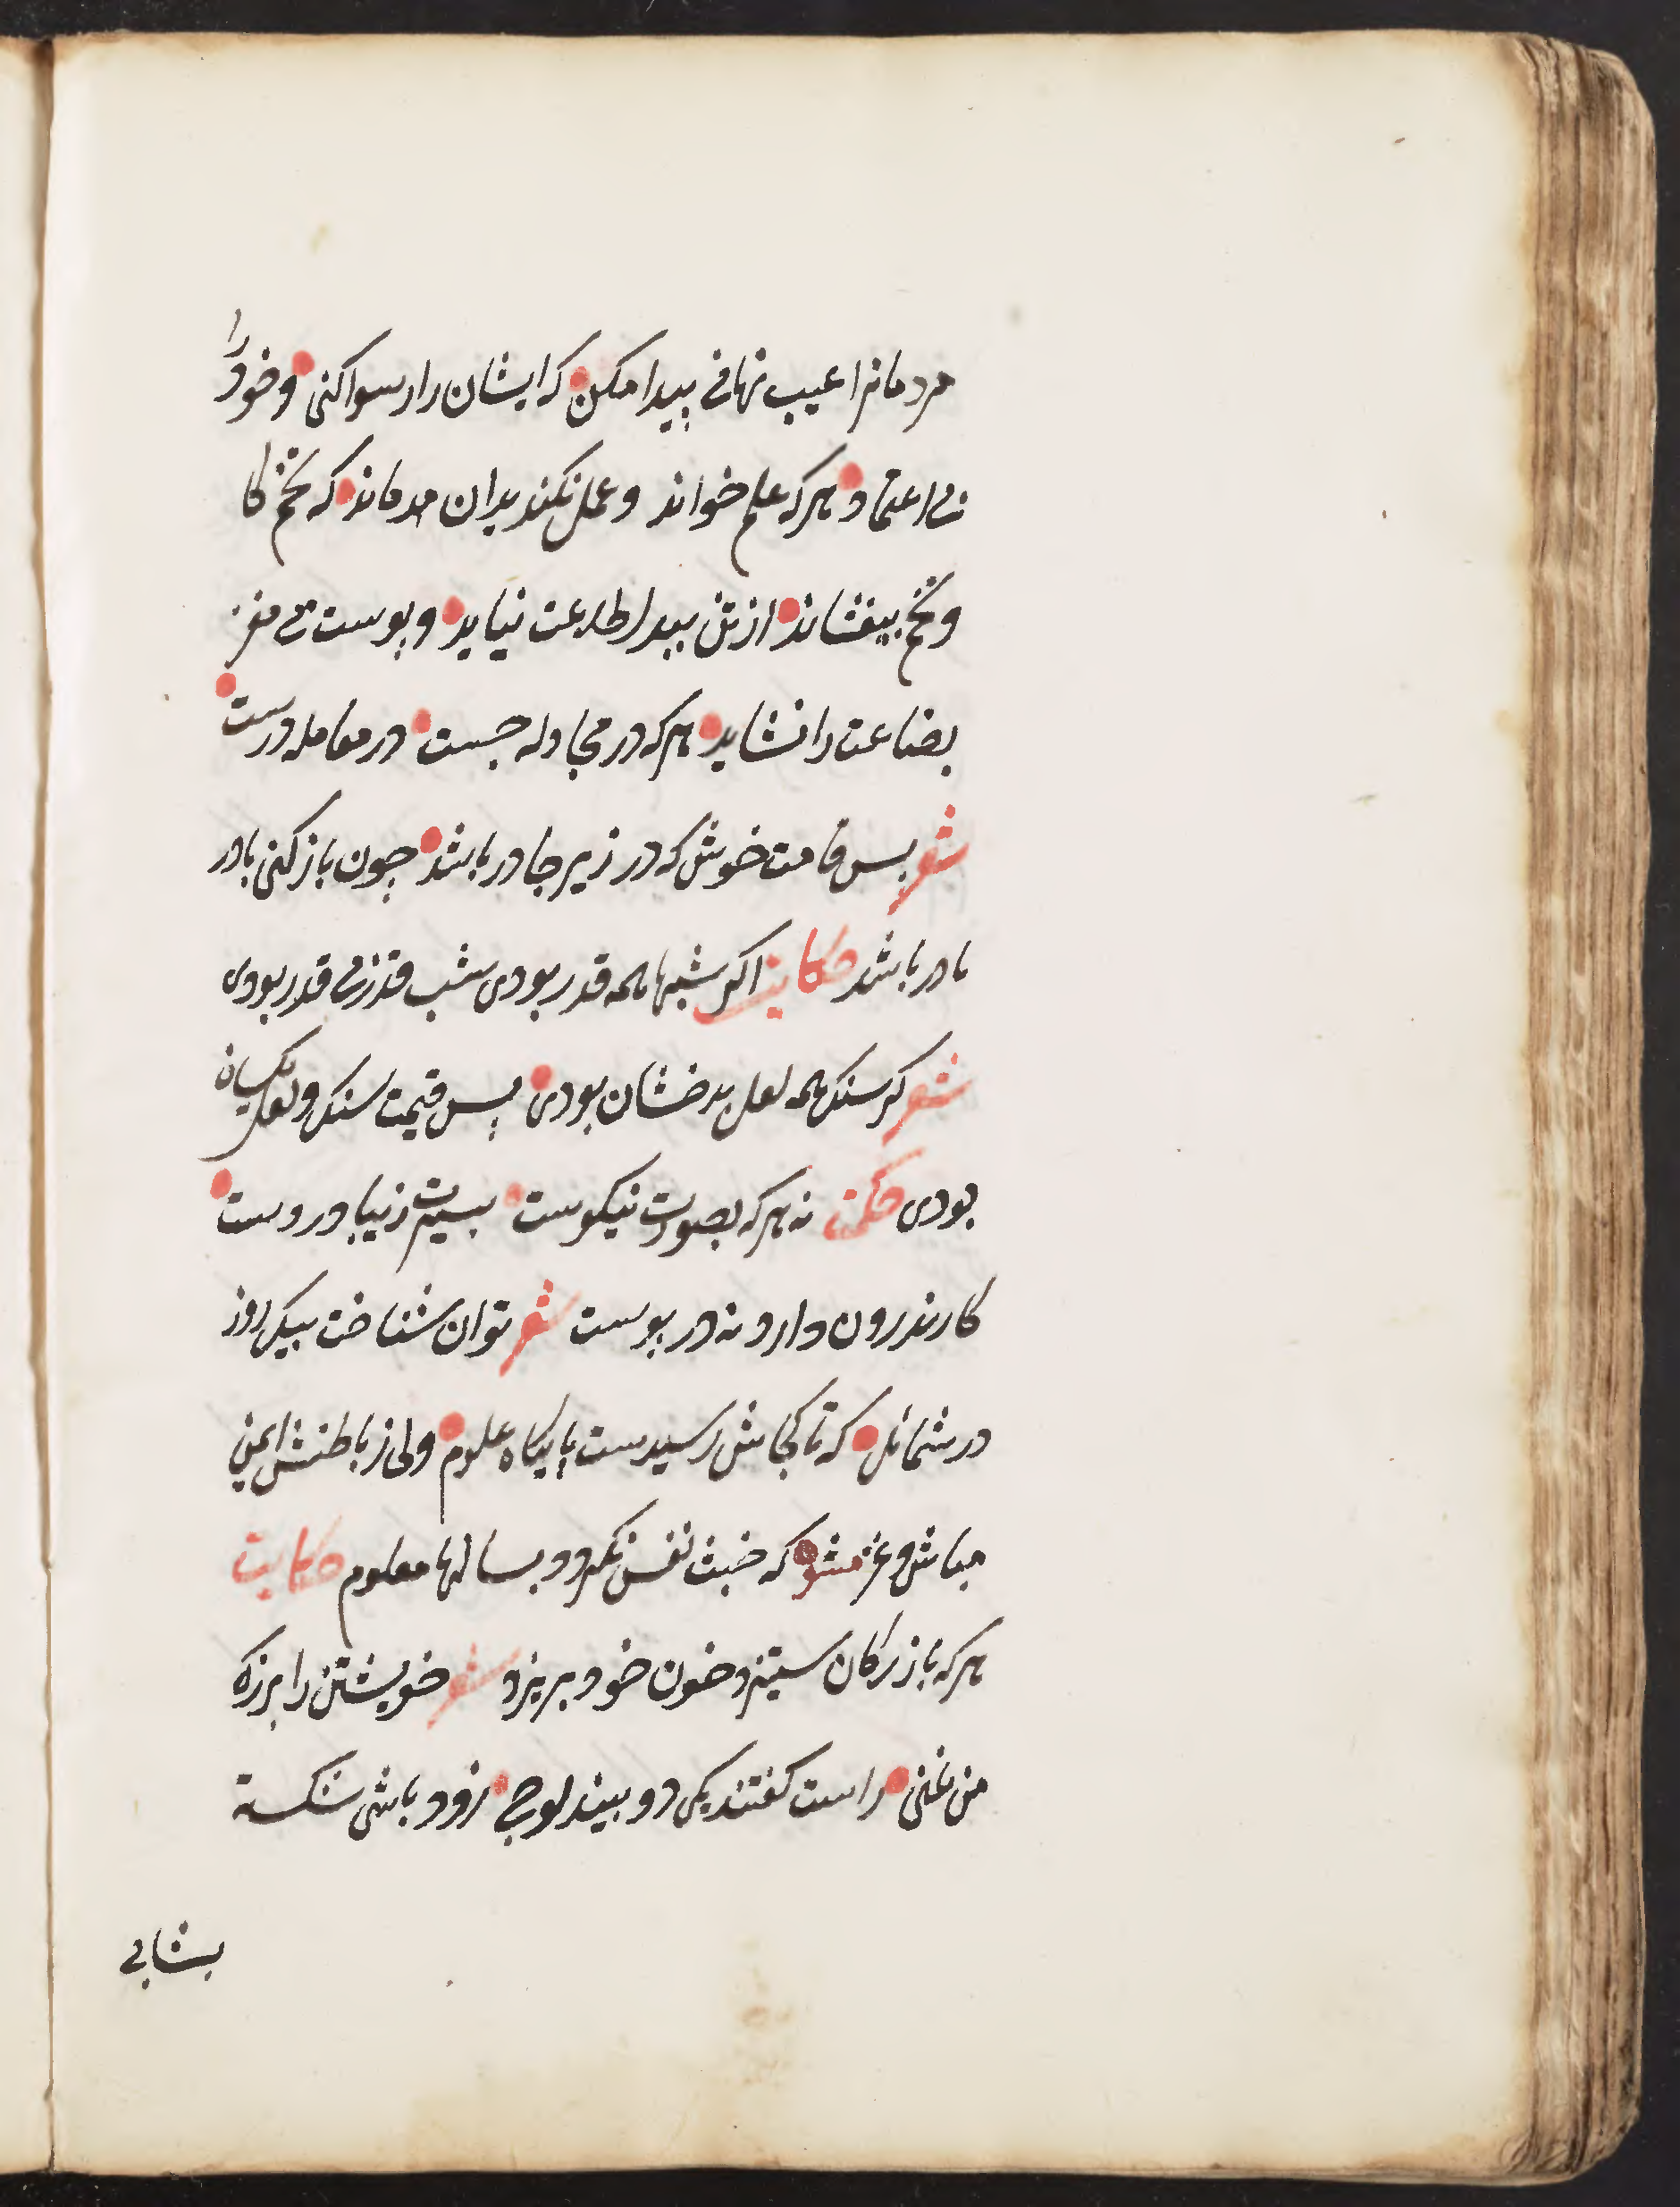 مردمانرا عیب نهانی پیدا مکن که ایشان را رسوا کنی و خود را
بی اعتماد هر که علم خواند و عمل نکند بدان مد ماند که تخم کا
و تخم بیفشاند از تن بیدل طاعت نیاید و پوست بی مغز
بضاعت را نشاید هر که در مجادله جست در معامله درست
شعر بس قامت خوش که در زیر جادر باشد چون باز کنی بادر
مادر باشد حکایت اکر شبها همه قدر بودی شب قدر بی قدر بودی
شعر کر سنک همه لعل بدخشان بودی پس قیمت سنک و لعل یکسان
بودی حکمت نه هر که بصورت نیکوست بسیرت زیبا در وست
کار ندرون دارد نه در پوست شعر توان شناخت بیک روز
در شمائل که تا کجاش رسیدست پایکاه علوم ولی ز باطنش ایمن
مباش و غره مشو که خبث نفس نکردد بسالها معلوم حکایت
هر که با بزرکان ستیزد خون خود بریزد شعر خویشتن را بزرک
من غنی راست کفتند یکی دو بیند لوج زود باشی شکسته
بشابی